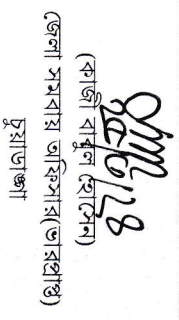 (কাজি বাবুল হোসেন)
জেলা সমবায় অফিসার(ভারপ্রাপ্ত)
চুয়াডাঙ্গা